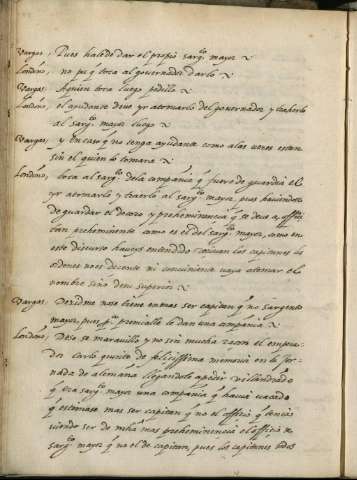 Vargas, Pues hale de dar el propio sargᵗᵒ mayor
Londoño, no pꝰ q̃ toca al governador darlo
Vargas, A quien toca luego pedillo
Londoño, el ayudante deve yr a tomarlo del governador y traherlo
al sargᵗᵒ mayor luego
Vargas, y en caso q̃ no tenga ayudante como a las vezes estan
sin el quien lo tomara
Londoño, toca al sargᵗᵒ de la compañia q̃ fuere de guardia el
yr a tomarlo y traerlo al sargᵗᵒ mayor, pues haviendose
de guardar el decoro y preheminencia q̃ se deve a offiº
tan preheminente como es el del sargᵗᵒ mayor, como en
este discurso haveys entendido los capitanes las
ordenes no es decente ni conviniente vaya a tomar el
nombre sino de su superior
Vargas, Dezidme nos tiene en mas ser capitan q̃ no sargento
mayor, pues pᵃ premialle le dan una compañia
Londoño, Deso se maravillo y no sin mucha razon el empera-
dor Carlo quinto de felicissima memoria en la jor-
nada de alemaña llegandole a pedir Villandrado
q̃ era sargᵗᵒ mayor una compañia q̃ havia vacado
q̃ estimase mas ser capitan q̃ no el officio q̃ tenia
siendo ser de mucha mas preheminencia el officio de
sargᵗᵒ mayor q̃ no el de capitan, pues los capitanes todos